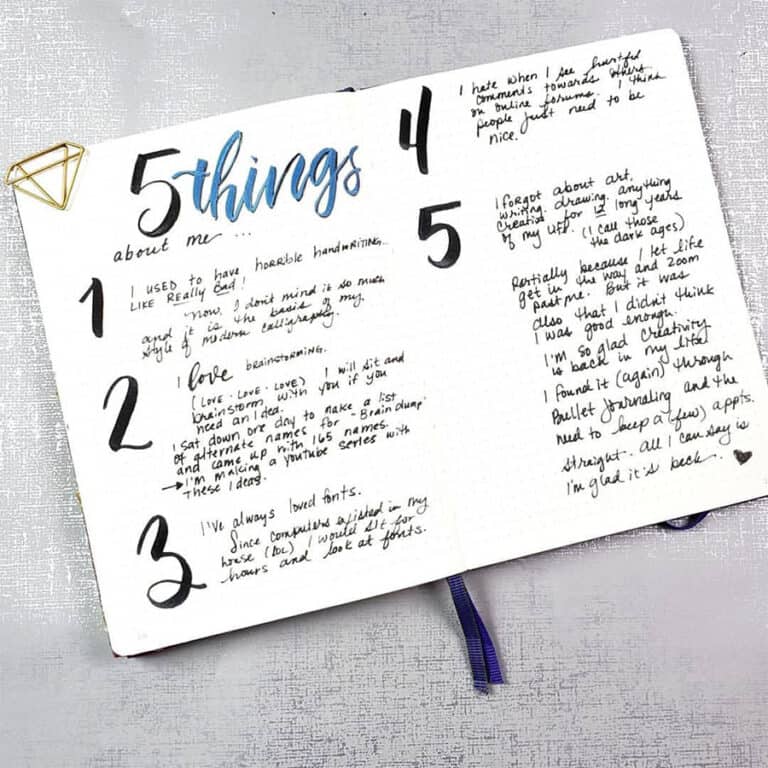 5 things
about me ...
1
I USED to have horrible handwriting...
LIKE Really Bad!
Now, I don't mind it so much
and it is the basis of my
style of modern calligraphy.
2
I love brainstorming.
(LOVE · LOVE · LOVE) I will sit and
brainstorm with you if you
need an Idea.
I sat down one day to make a list
of alternate names for "Brain dump"
and came up with 165 names.
→ I'm making a Youtube series with
These Ideas.
3
I've always loved fonts.
Since computers existed in my
house (LOL) I would sit for
hours and look at fonts.
4
I hate when I see hurtful
comments towards others
on online forums. I think
people just need to be
nice.
5
I forgot about art,
writing, drawing, anything
creative for 12 long years
of my life. (I call those
the dark ages)
Partially because I let life
get in the way and zoom
past me. But it was
also that I didn't think
I was good enough.
I'm so glad creativity
is back in my life
I found it (again) through
Bullet Journaling and the
need to keep a (few) appts.
straight. All I can say is
I'm glad it's back.